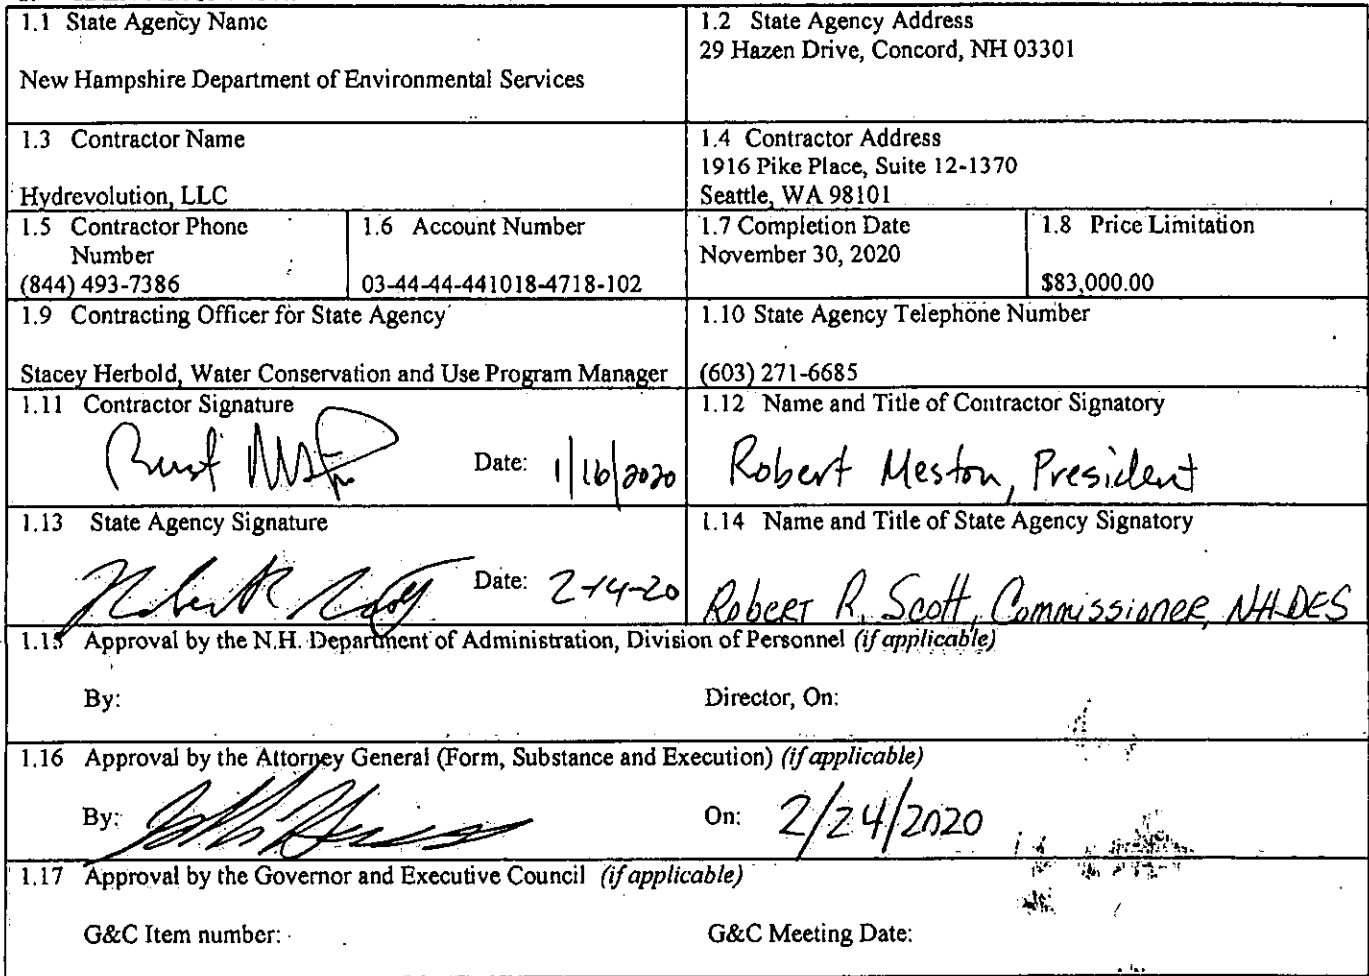 1.1 State Agency Name
New Hampshire Department of Environmental Services
1.2 State Agency Address
29 Hazen Drive, Concord, NH 03301
1.3 Contractor Name
Hydrevolution, LLC
1.4 Contractor Address
1916 Pike Place, Suite 12-1370
Seattle, WA 98101
1.5 Contractor Phone
Number
(844) 493-7386
1.6 Account Number
03-44-44-441018-4718-102
1.7 Completion Date
November 30, 2020
1.8 Price Limitation
$83,000.00
1.9 Contracting Officer for State Agency
Stacey Herbold, Water Conservation and Use Program Manager
1.10 State Agency Telephone Number
(603) 271-6685
1.11 Contractor Signature
Date: 1/16/2020
1.12 Name and Title of Contractor Signatory
Robert Meston, President
1.13 State Agency Signature
Date: 2-14-20
1.14 Name and Title of State Agency Signatory
Robert R. Scott, Commissioner, NHDES
1.15 Approval by the N.H. Department of Administration, Division of Personnel (if applicable)
By:
Director, On:
1.16 Approval by the Attorney General (Form, Substance and Execution) (if applicable)
By:
On: 2/24/2020
1.17 Approval by the Governor and Executive Council (if applicable)
G&C Item number:
G&C Meeting Date: